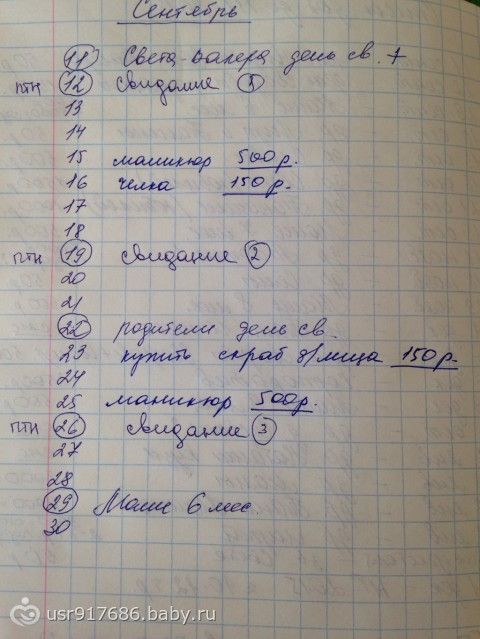 Сентябрь
11 Света-Валера день св. 7
птн 12 свидание 1
13
14
15 маникюр 500 р.
16 челка 150 р.
17
18
птн 19 свидание 2
20
21
22 родители день св.
23 купить скраб д/лица 150 р.
24
25 маникюр 500 р.
птн 26 свидание 3
27
28
29 Маше 6 мес.
30
usr917686.baby.ru